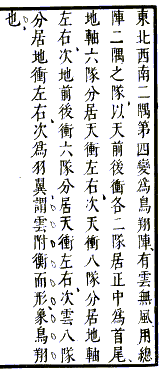 東北西南二隅第四變為鳥翔陣有雲無風用總
陣二隅之隊以天前後衝各二隊居正中為首尾
地軸六隊分居天衝左右次天衝八隊分居地軸
左右次地前後衝六隊分居天衝左右次雲八隊
分居地衝左右次為羽翼謂雲附衝而形象鳥翔
也